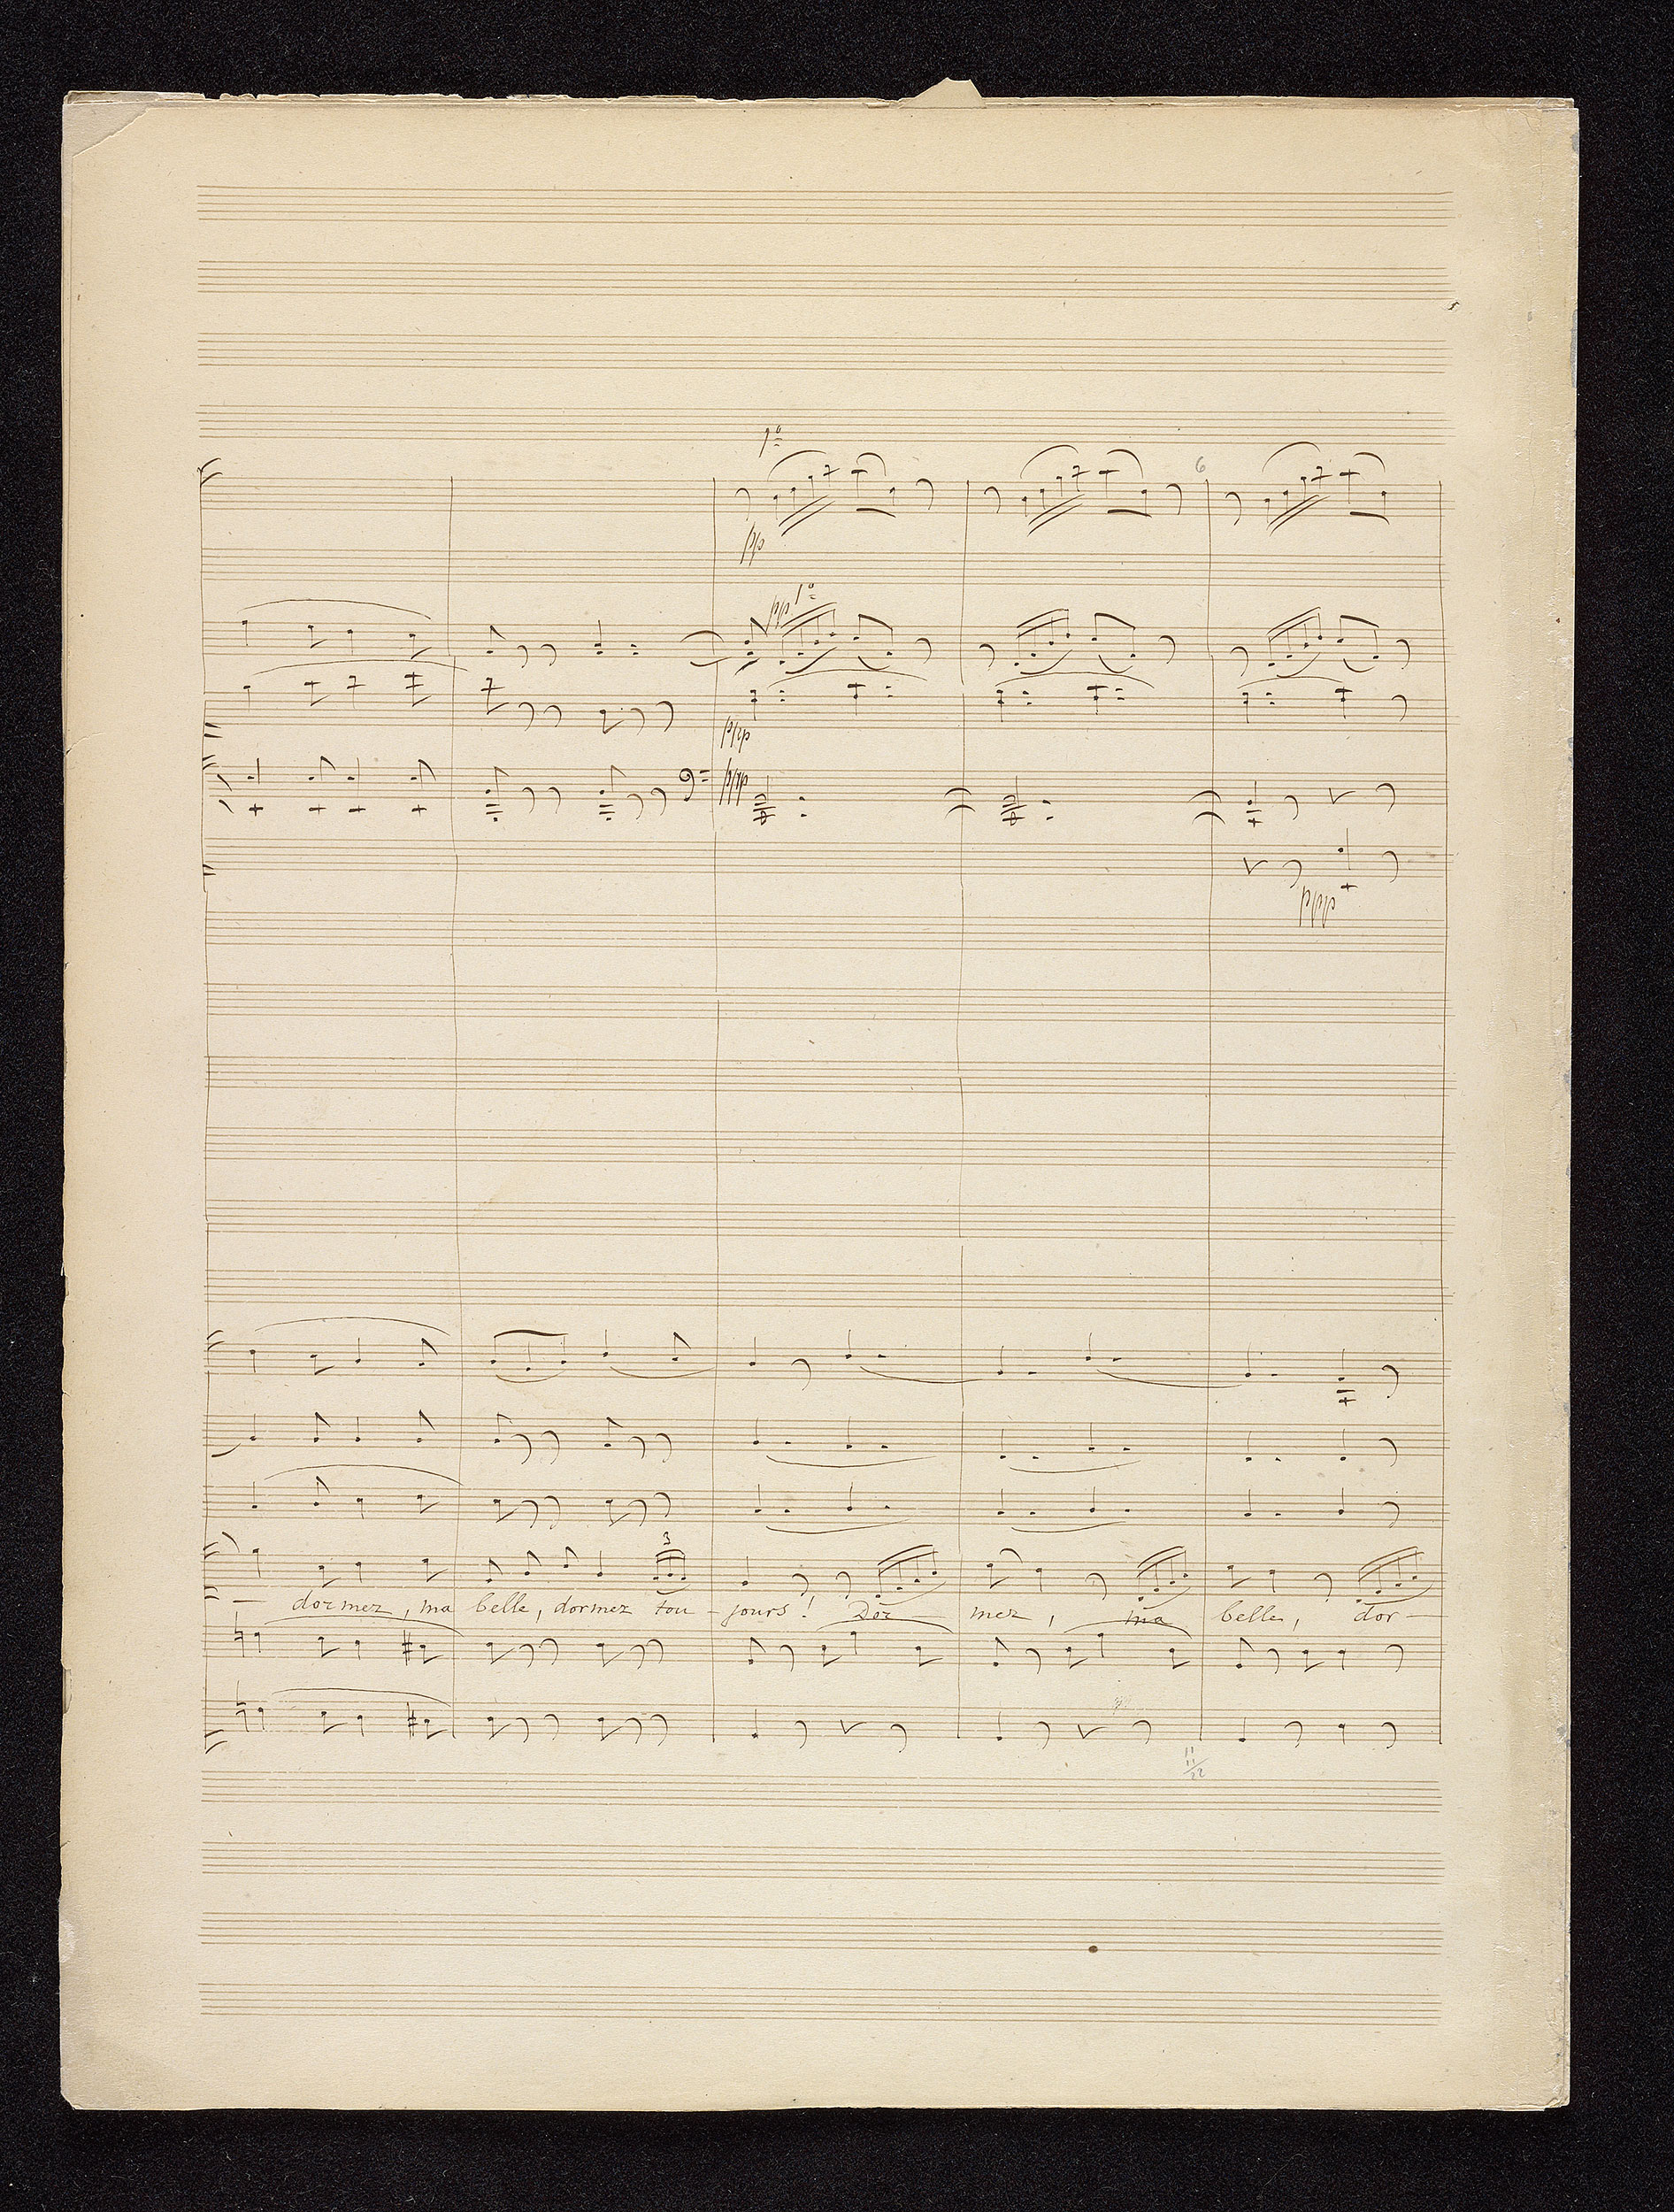 1º
6
pp
pp 1º
ppp
ppp
ppp
3
— dormez, ma belle, dormez tou - jours! Dor — mez, ma belle, dor —
11
11
22